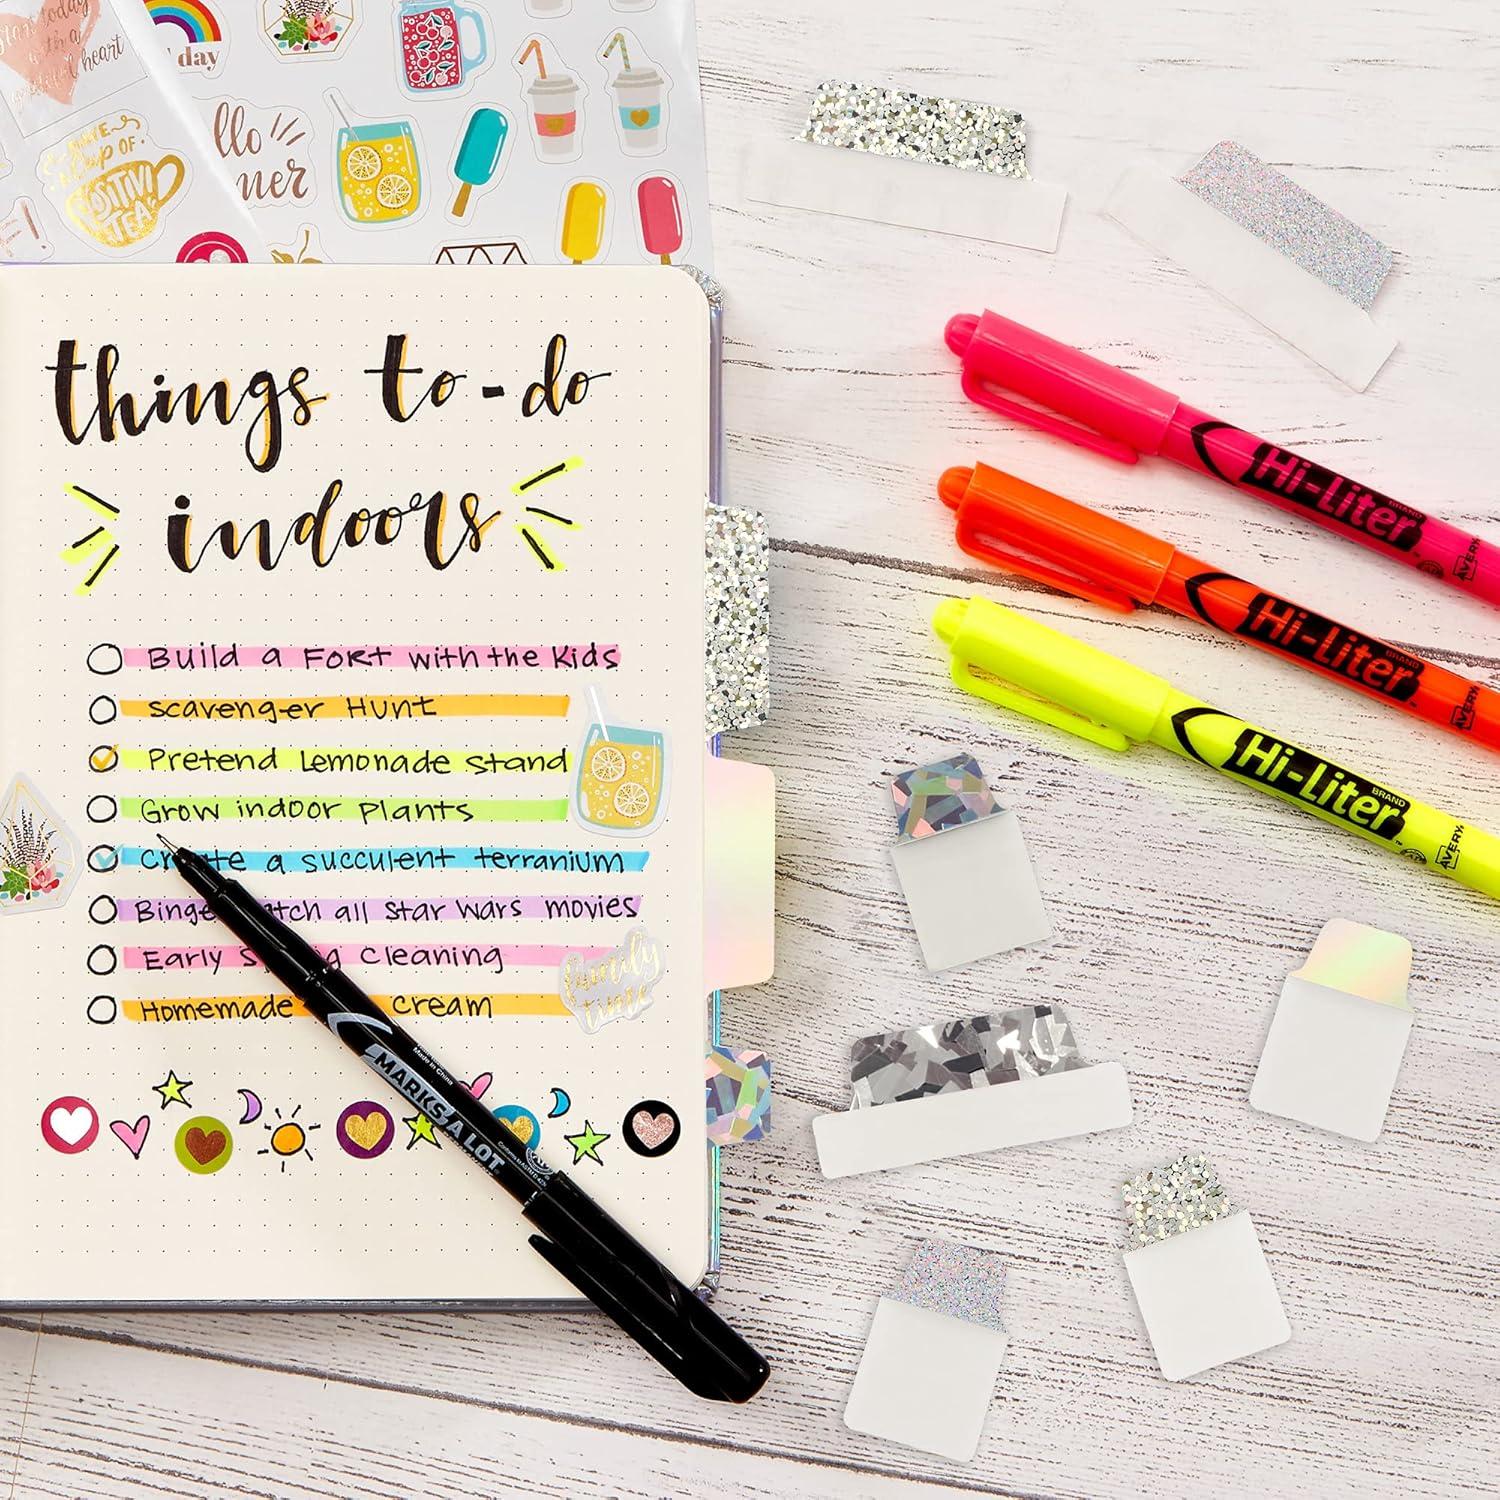 Start today
with a
heart
day
HAVE
A CUP OF
POSITIVI
TEA
llo
ner
things to-do
indoors
Build a Fort with the Kids
Scavenger Hunt
Pretend Lemonade Stand
Grow indoor Plants
Create a succulent terranium
Binge atch all Star Wars movies
Early S g Cleaning
Homemade Cream
family
time
Made in China
MARKS A LOT
Hi-Liter
BRAND
AVERY
Hi-Liter
BRAND
AVERY
Hi-Liter
BRAND
AVERY